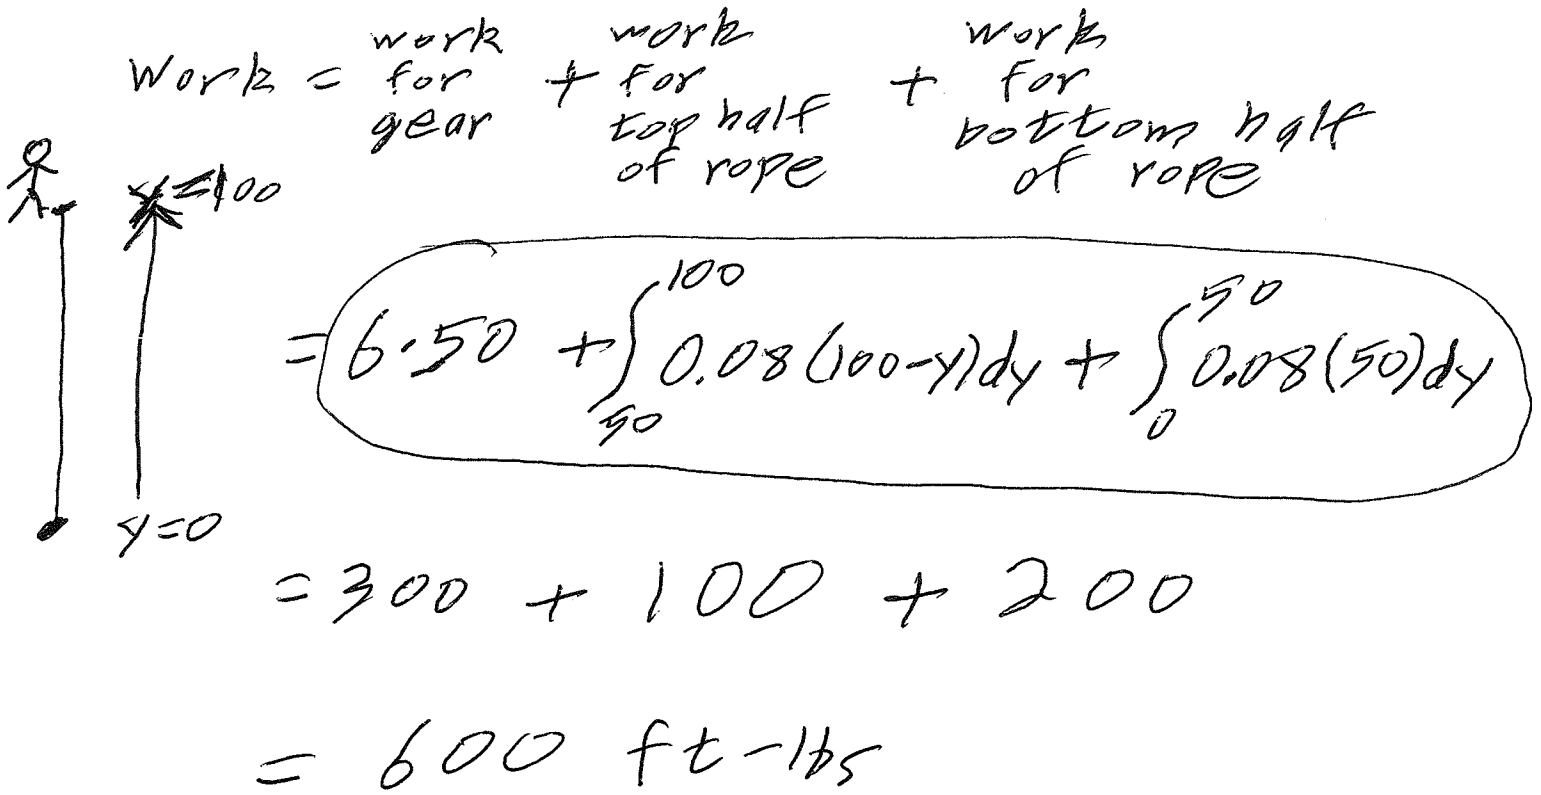 Work = work for gear + work for top half of rope + work for bottom half of rope
y=100
= 6·50 + ∫₅₀¹⁰⁰ 0.08(100-y)dy + ∫₀⁵⁰ 0.08(50)dy
y=0
= 300 + 100 + 200
= 600 ft-lbs